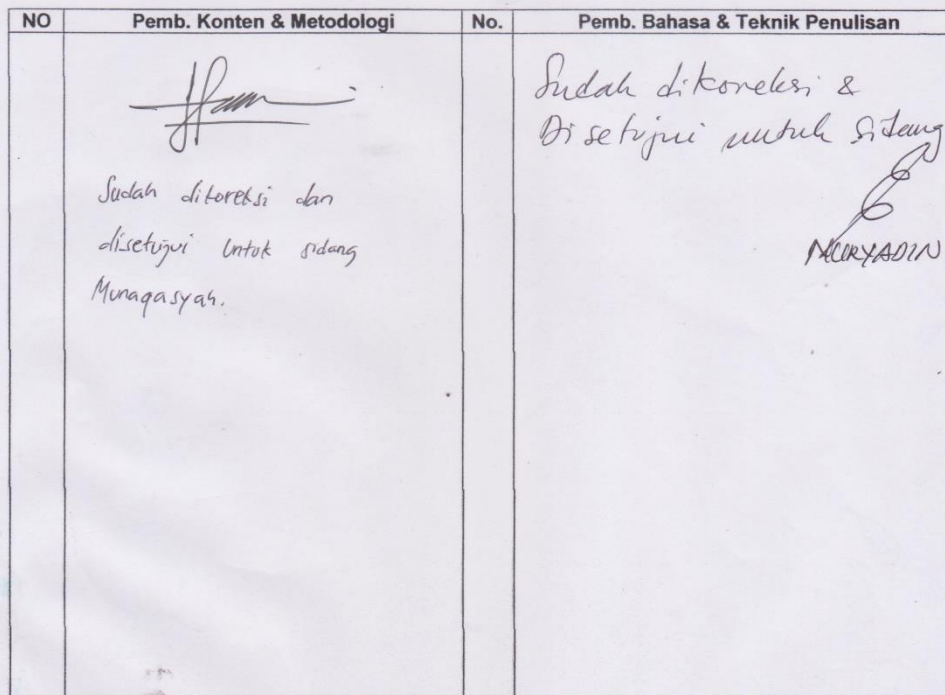 NO Pemb. Konten & Metodologi No. Pemb. Bahasa & Teknik Penulisan
Sudah dikoreksi dan
disetujui untuk sidang
Munaqasyah.
Sudah dikoreksi &
Disetujui untuk Sidang
NURYADIN